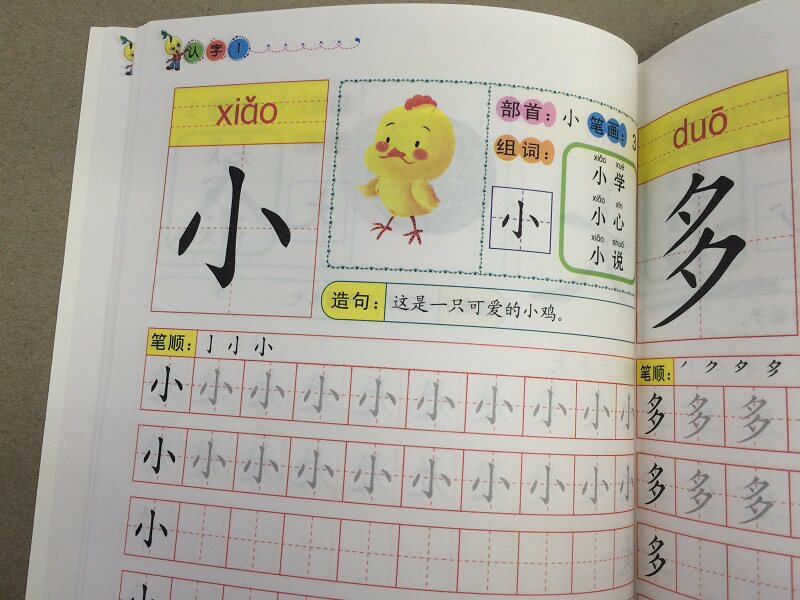 认字1
xiǎo
小
部首：小 笔画：3
组词：
小
xiǎo xué
小学
xiǎo xīn
小心
xiǎo shuō
小说
造句：这是一只可爱的小鸡。
笔顺：亅 小 小
小 小 小 小 小 小 小 小 小 小
小 小 小 小 小 小 小 小 小 小
小
duō
多
笔顺：
多 多 多
多 多 多
多